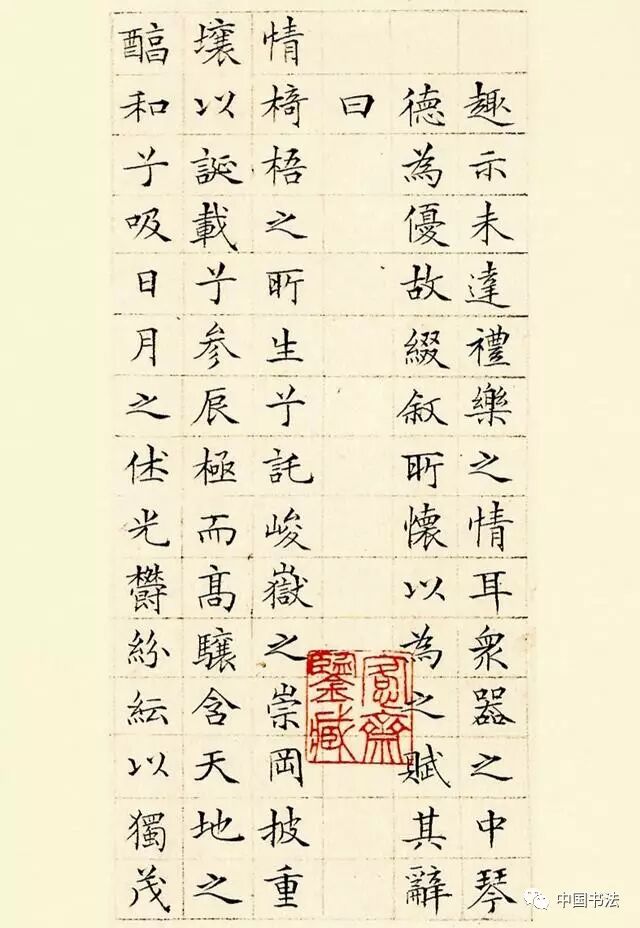 趣示未達禮樂之情耳衆器之中琴
德為優故綴叙所懷以為之賦其辭
曰
情椅梧之所生兮託峻嶽之崇岡披重
壤以誕載兮参辰極而高驤含天地之
醕和兮吸日月之休光鬱紛紜以獨茂
齋鑒藏
中国书法